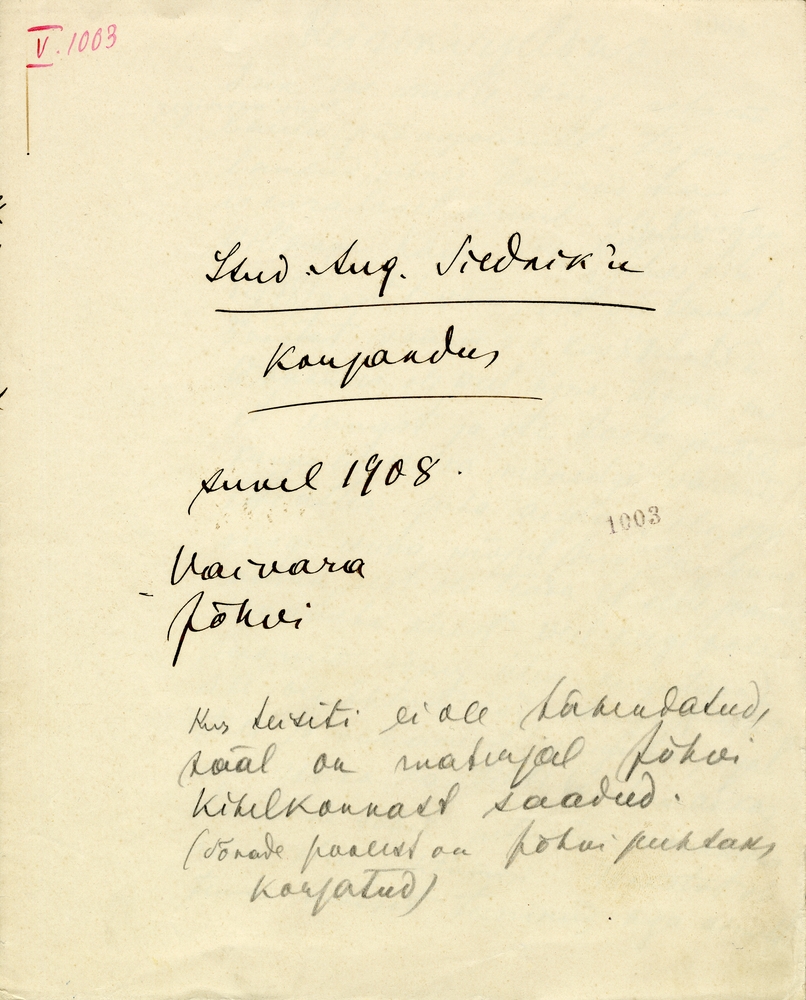 V. 1003
Stud. Aug. Siednik'u
Korjandus
suvel 1908.
1003
Vaivara
Jõhvi
Kus teisiti ei ole tähendatud,
sääl on materjal Jõhvi
kihelkonnast saadud.
(Sõnade poolest on Jõhvi puhtaks
korjatud)